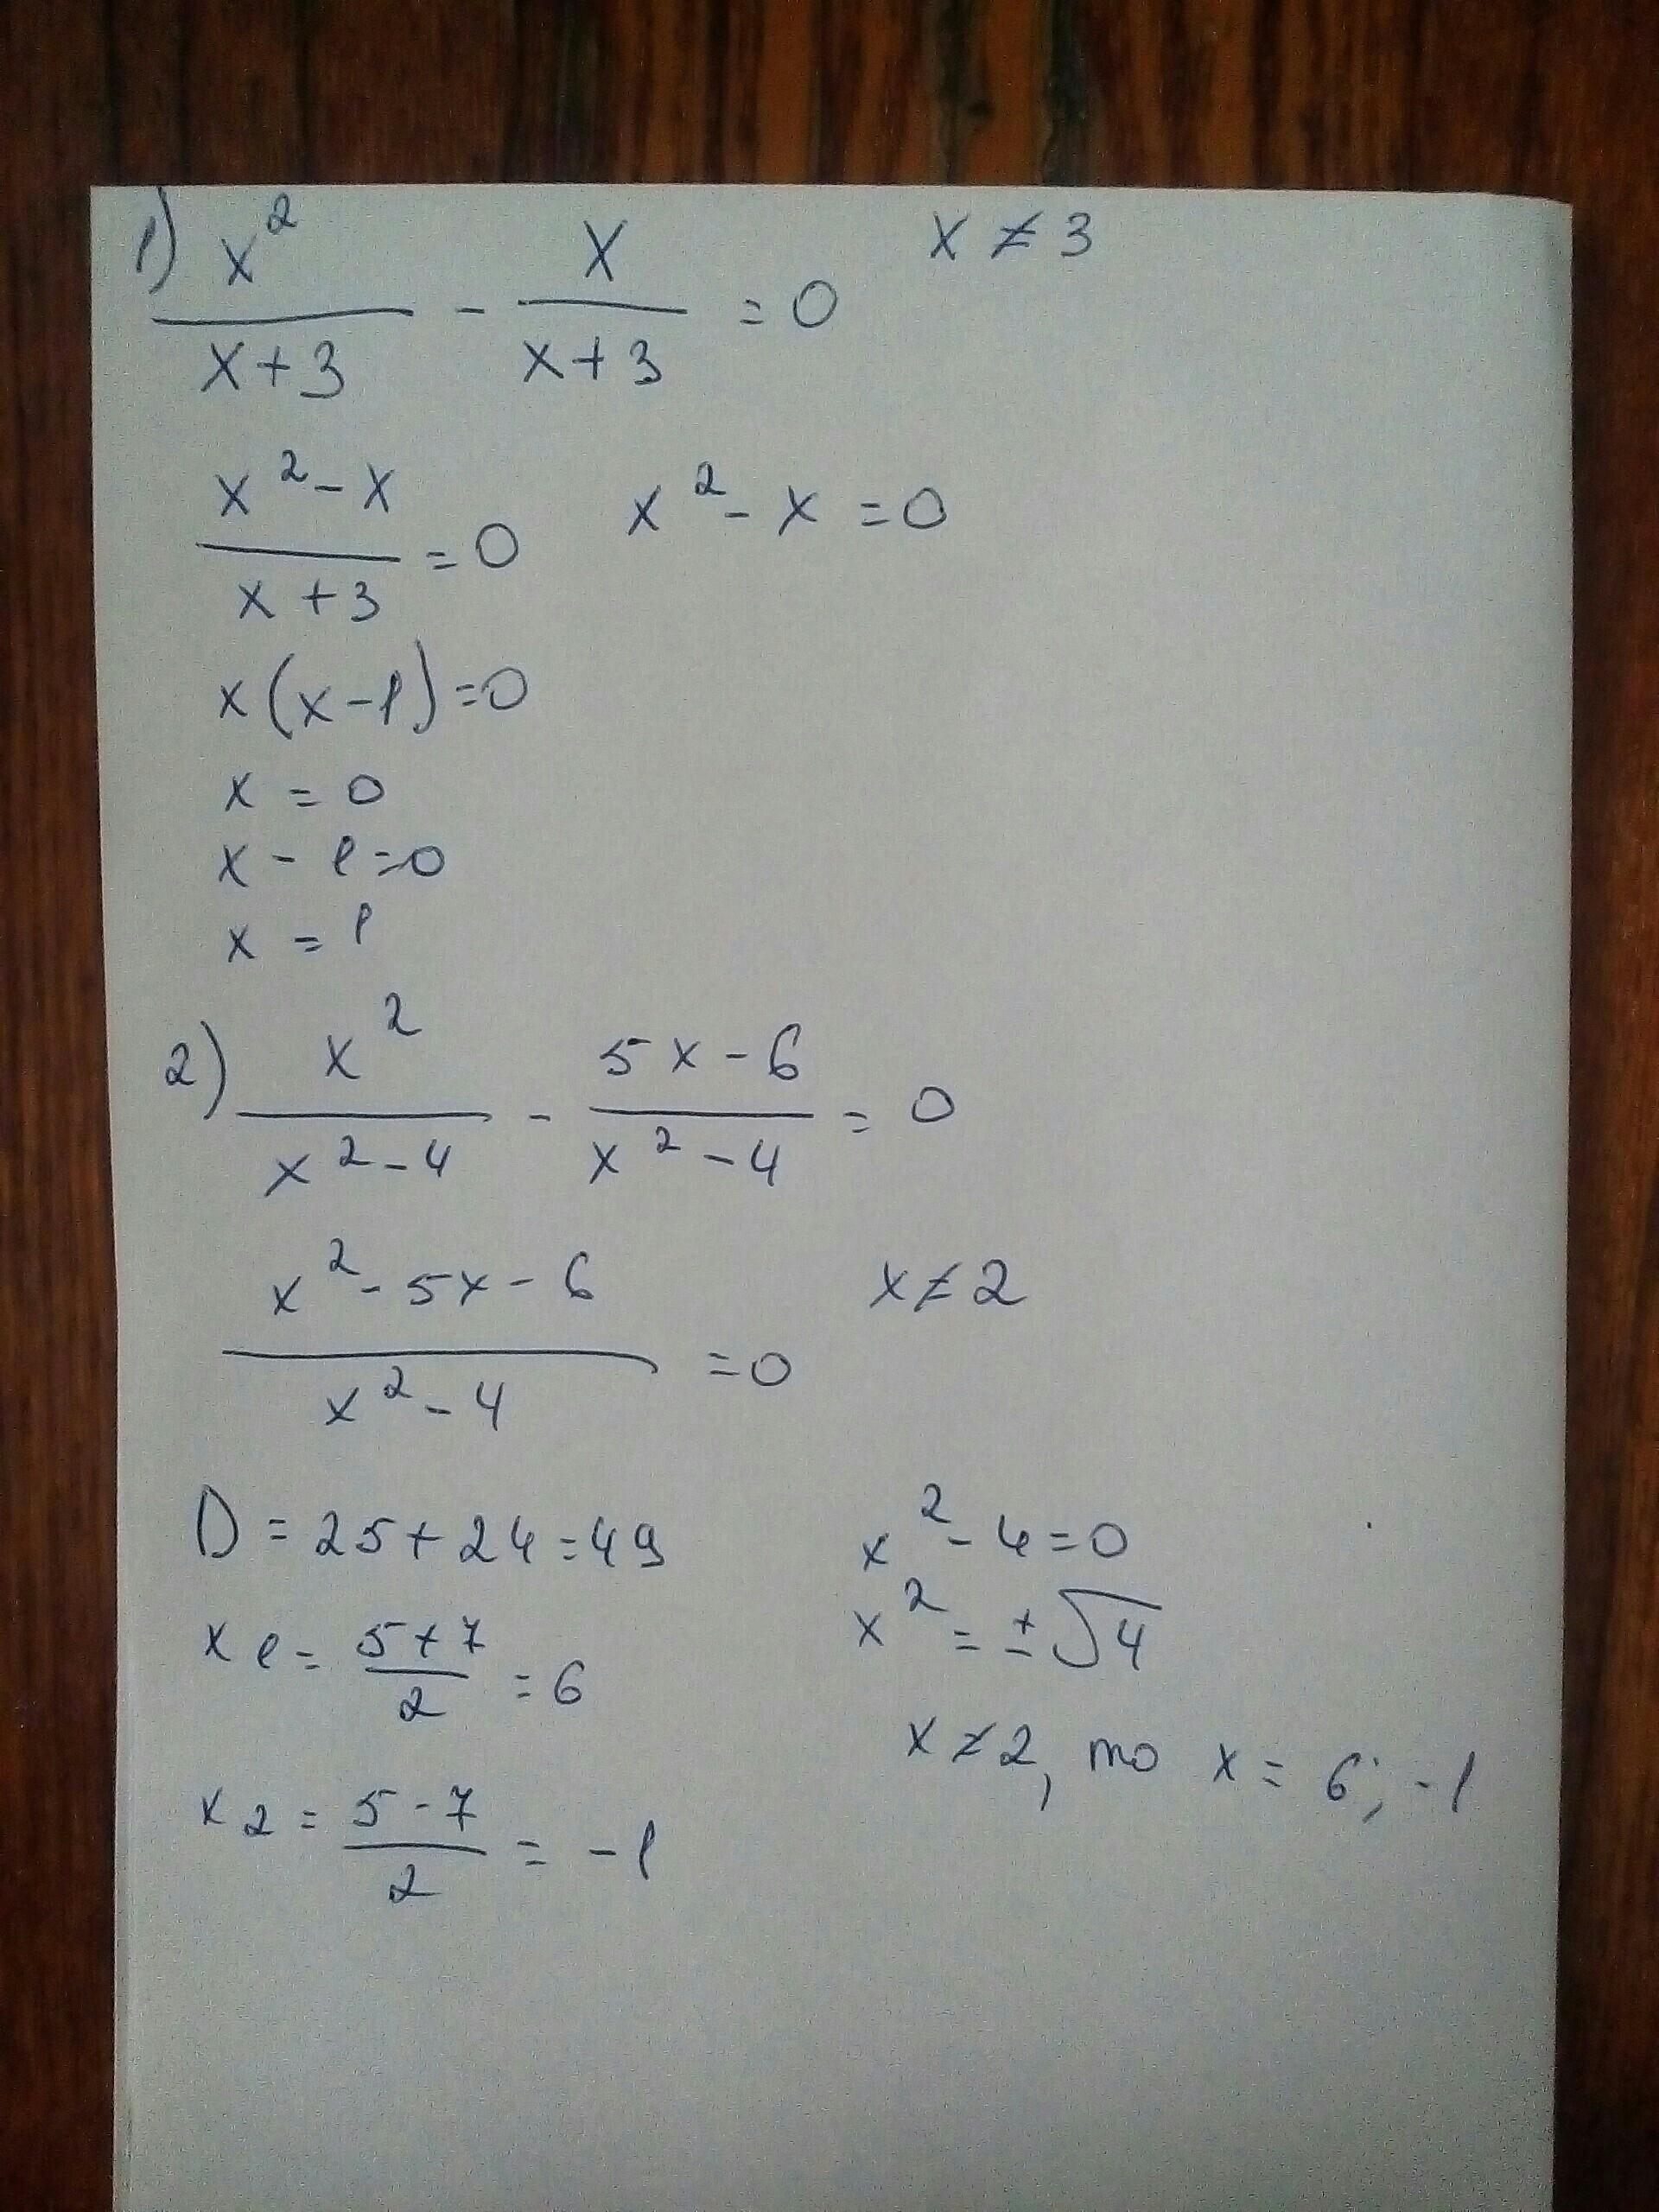 1) x²/(x+3) - x/(x+3) = 0    x ≠ 3
(x² - x)/(x+3) = 0    x² - x = 0
x(x-1) = 0
x = 0
x - 1 = 0
x = 1
2) x²/(x²-4) - (5x-6)/(x²-4) = 0
(x² - 5x - 6)/(x² - 4) = 0    x ≠ 2
D = 25 + 24 = 49    x² - 4 = 0
x1 = (5+7)/2 = 6    x² = ±√4
x ≠ 2, то x = 6; -1
x2 = (5-7)/2 = -1